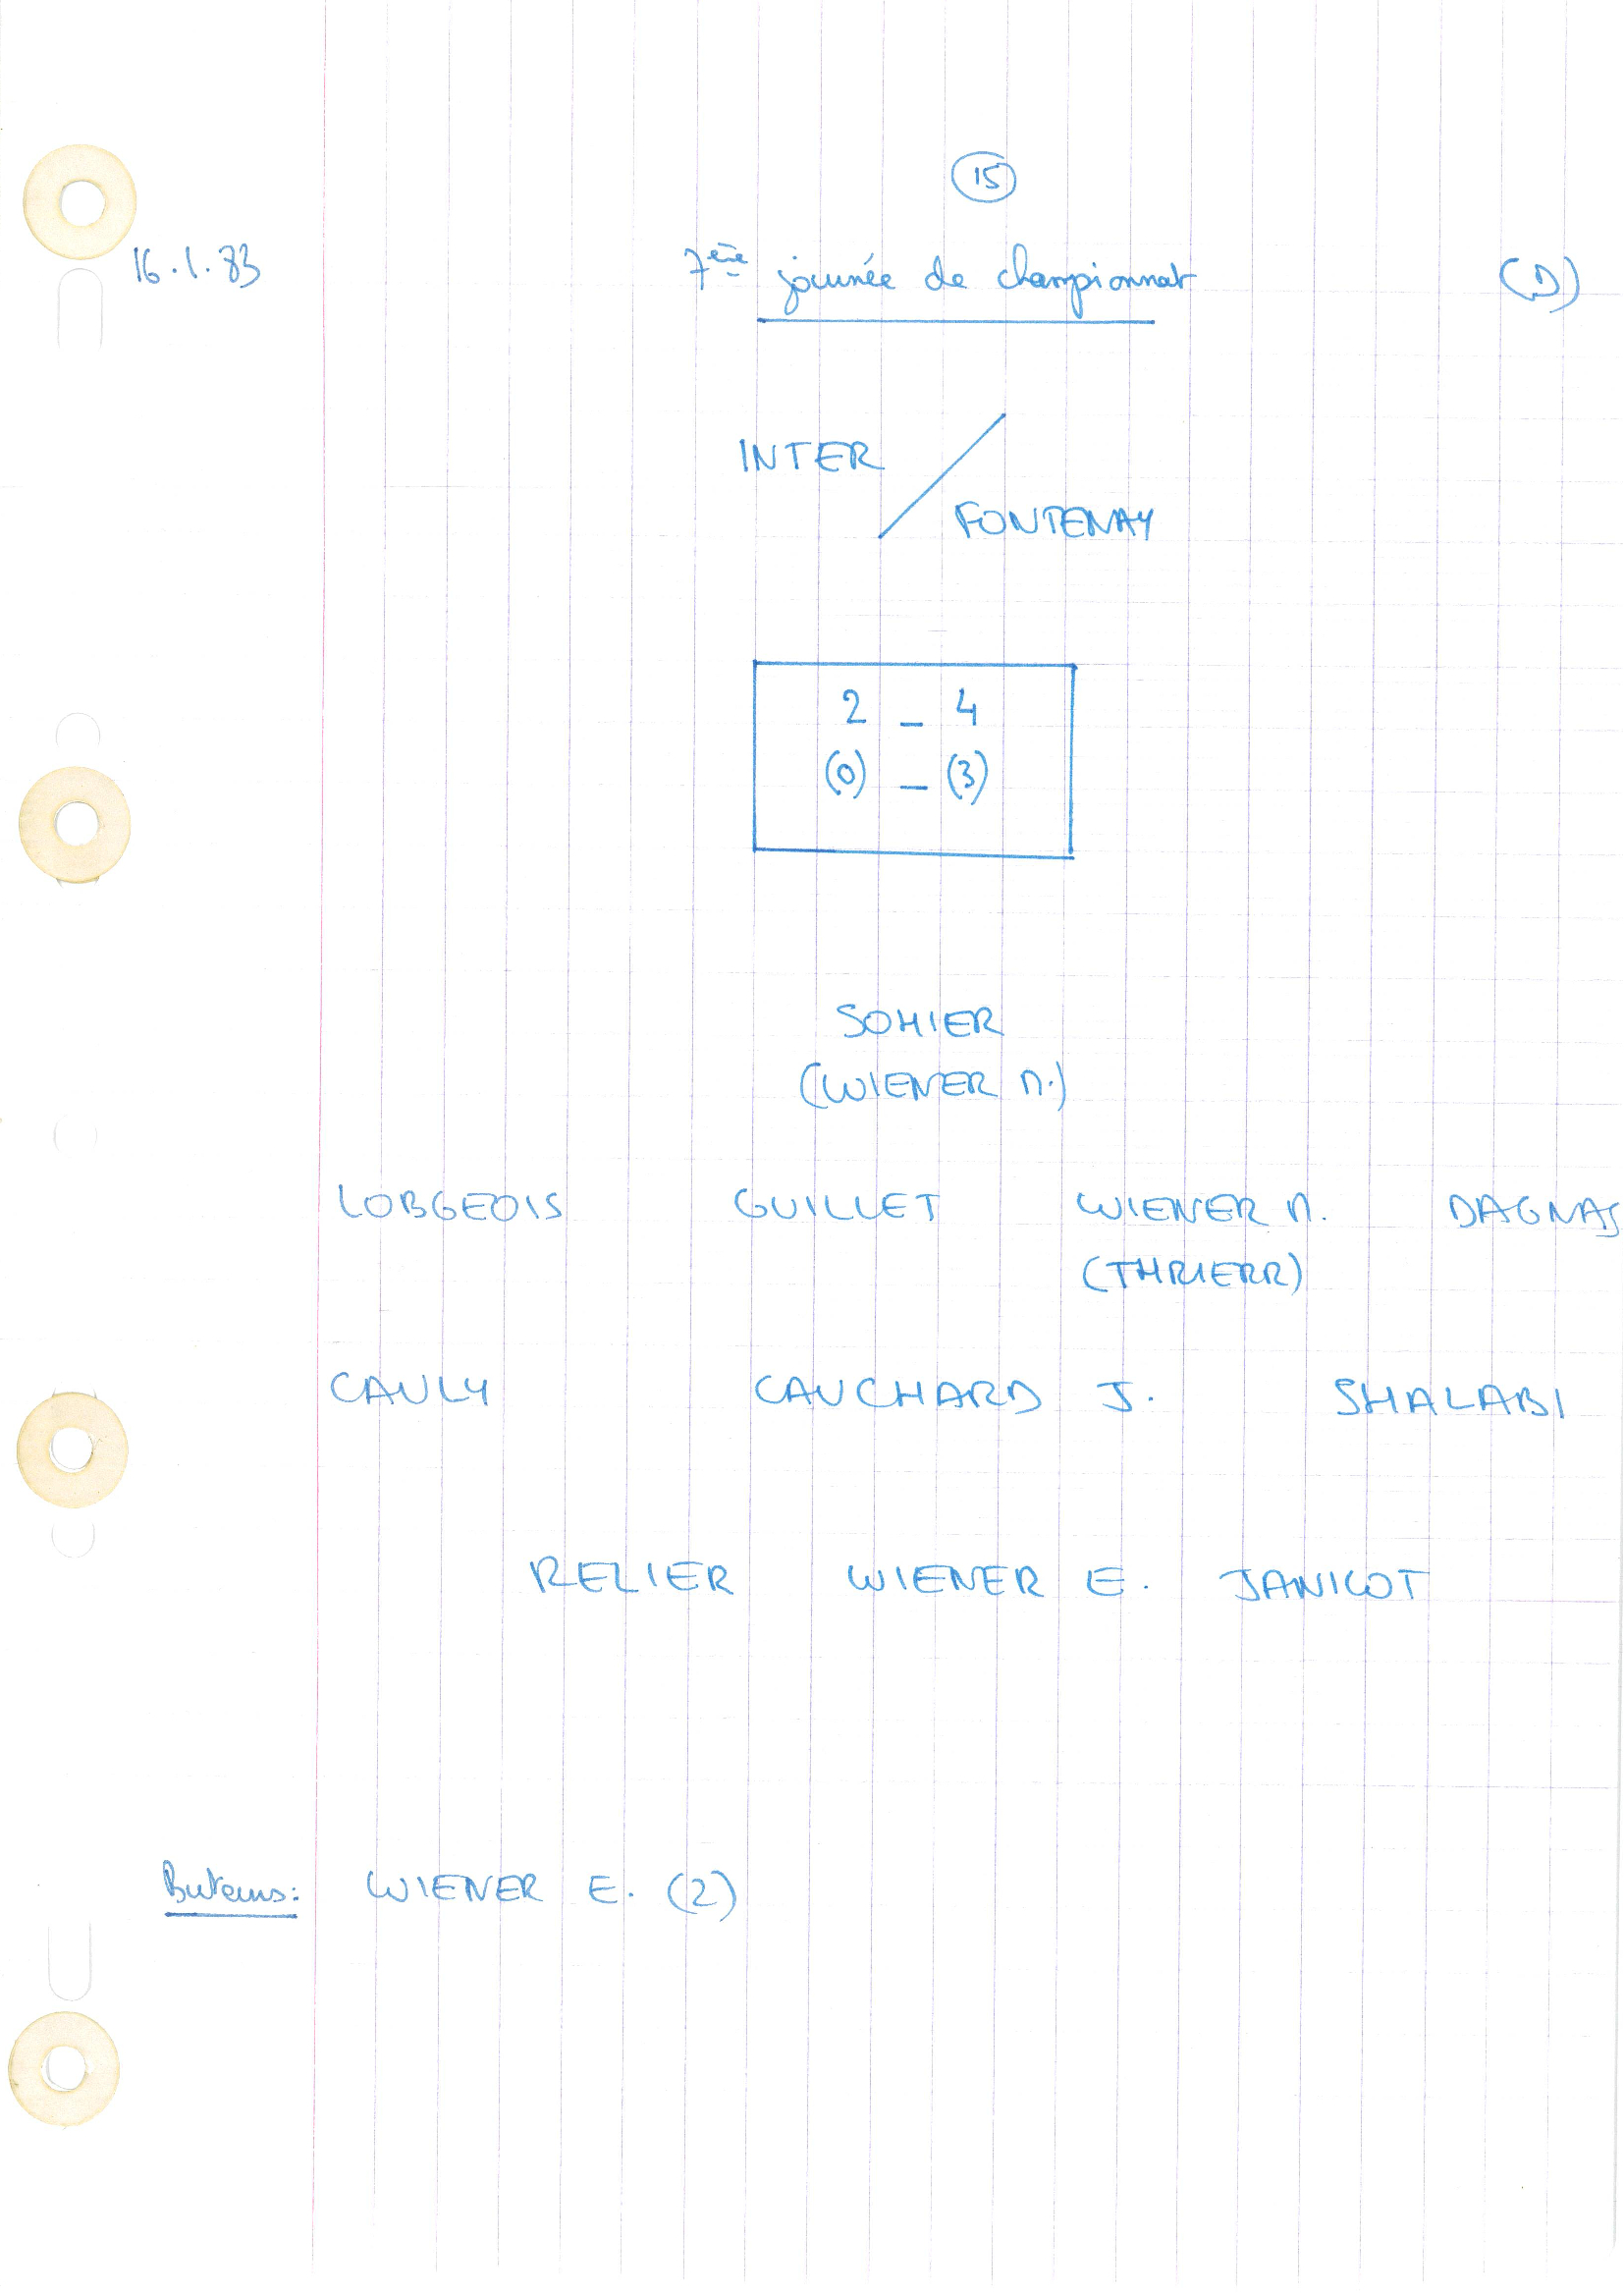 15
16.1.83 7ère journée de championnat (D)
INTER / FONTENAY
2 _ 4
(0) _ (3)
SOHIER
(WIENER M.)
LOBGEOIS GUILLET WIENER M. DAGNAS
(THRIERR)
CAULY CAUCHARD J. SHALABI
RELIER WIENER E. JANICOT
Buteurs: WIENER E. (2)